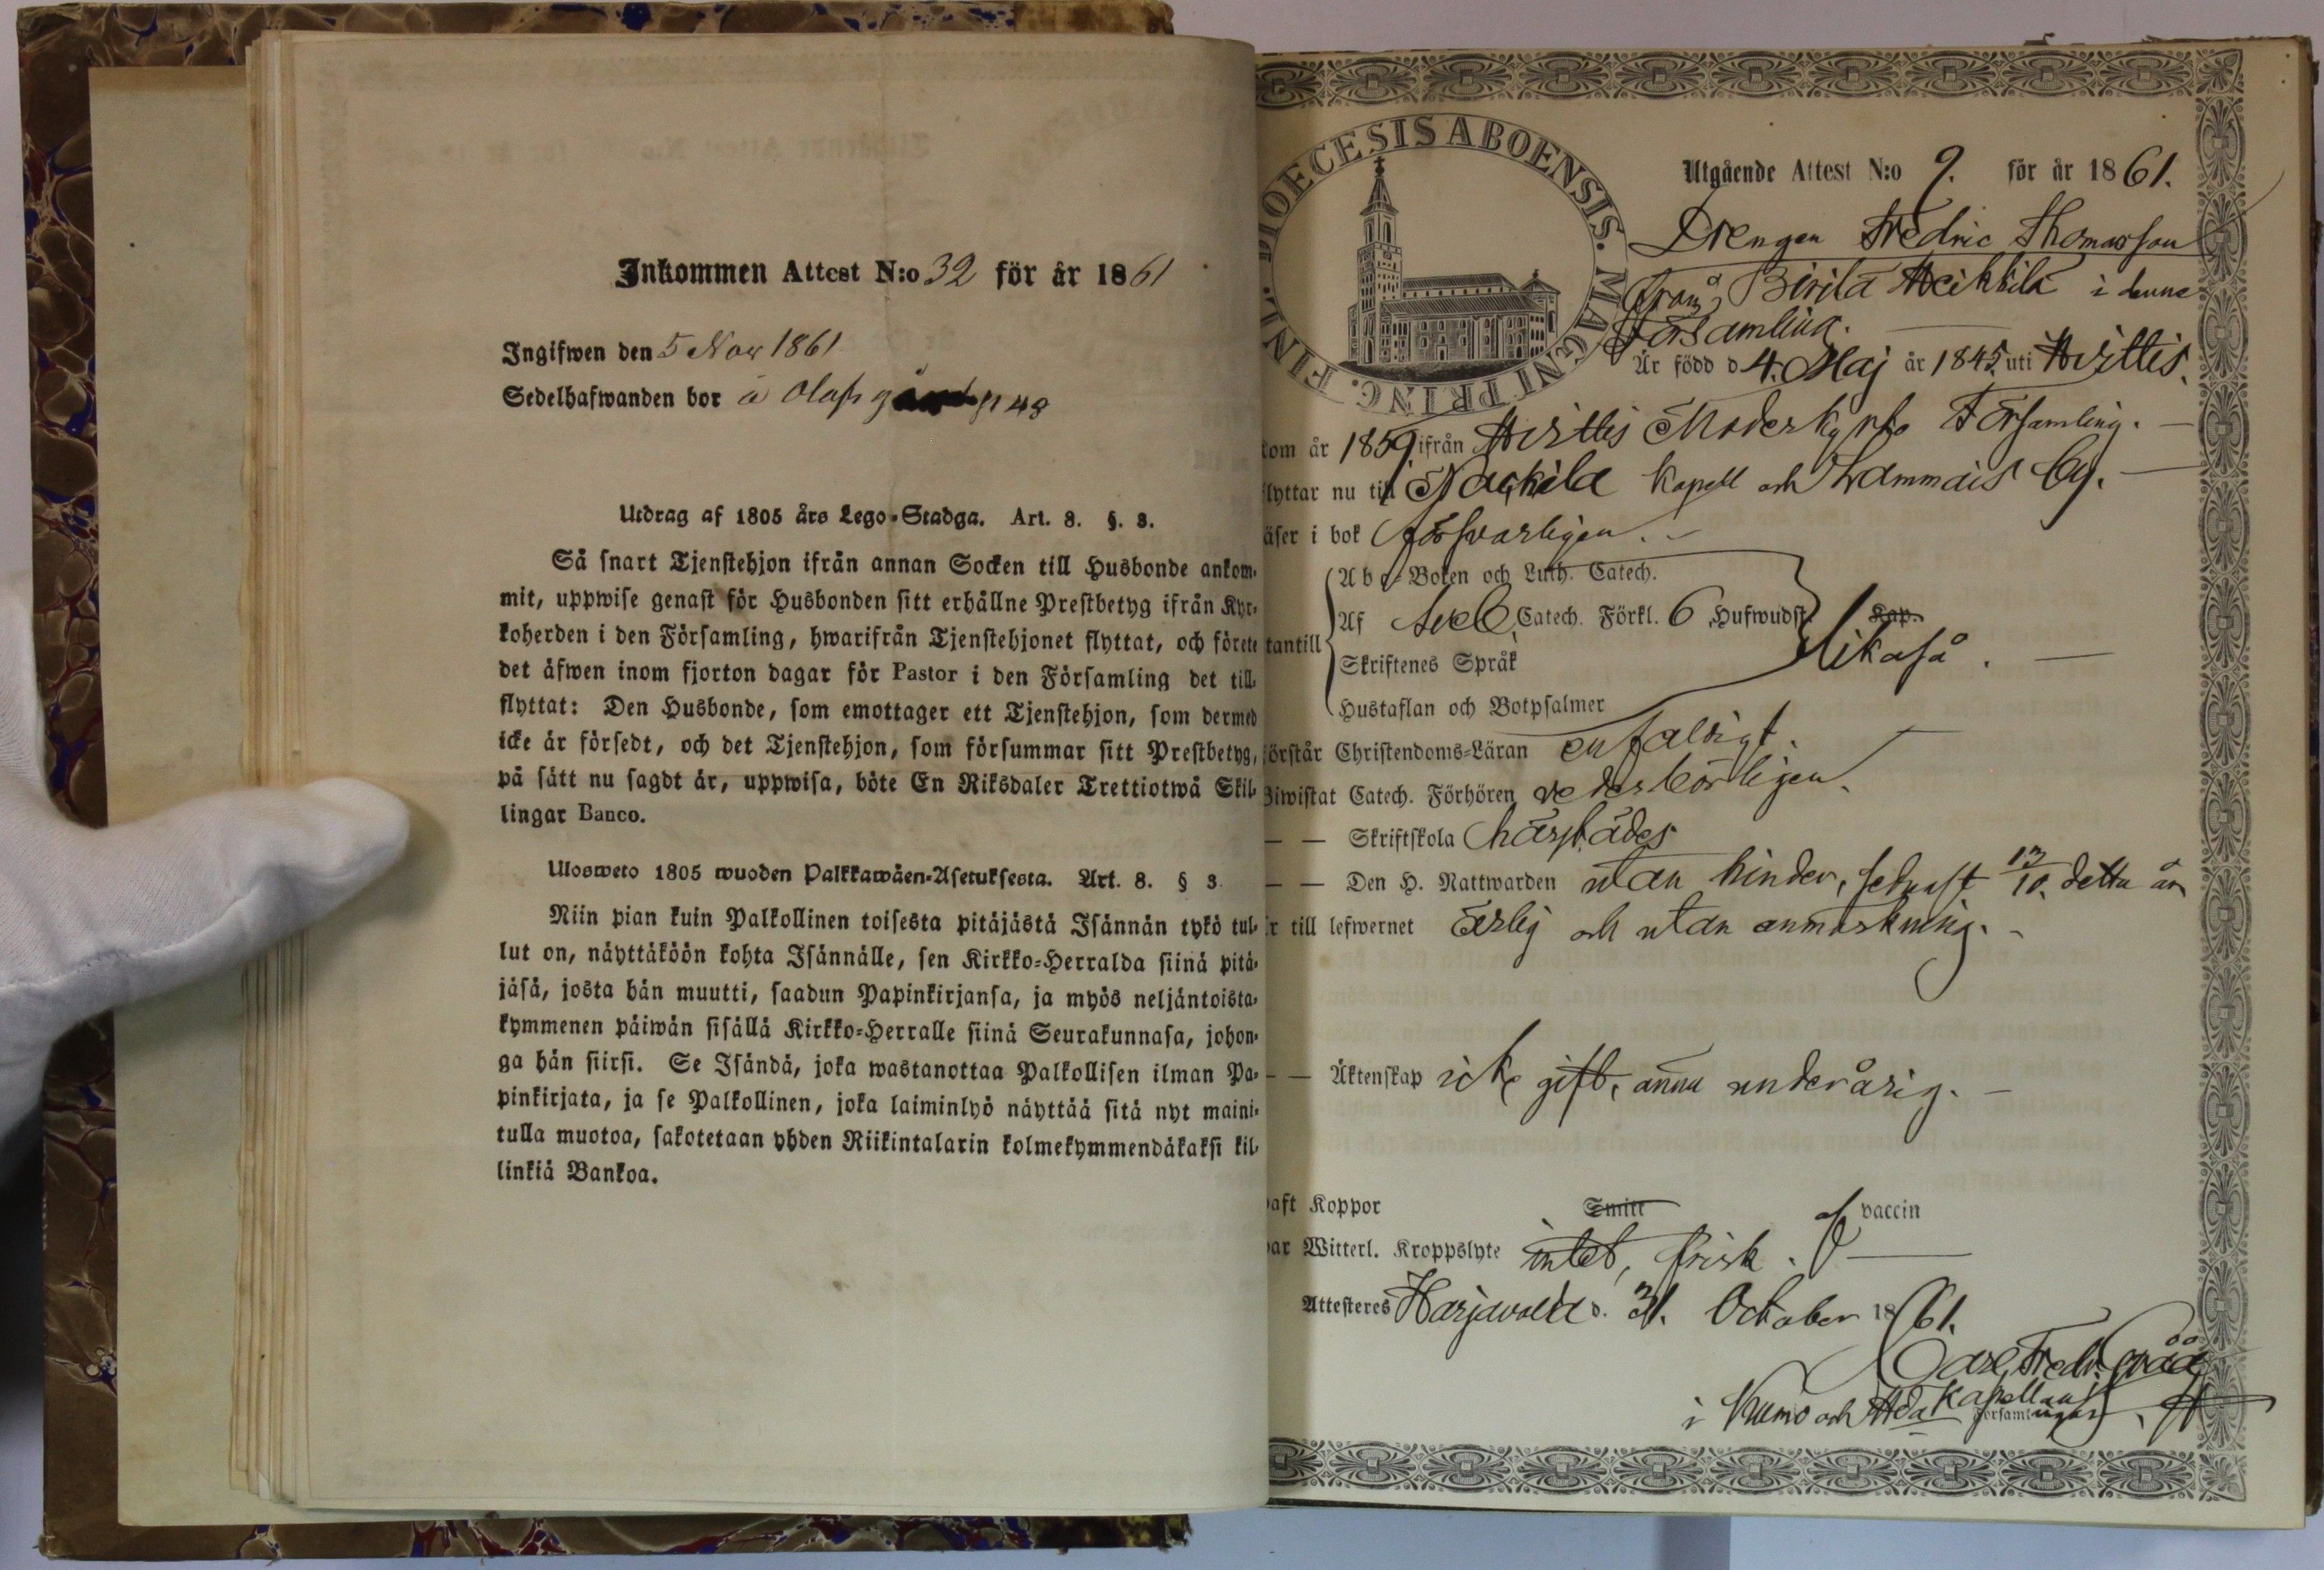 Inkommen Attest N:o 32 för år 1861
Ingifwen den 5 Nov 1861
Sedelhafwanden bor å Olofs p 48
Utdrag af 1805 års Lego-Stadga. Art. 8. §. 3.
Så snart Tjenstehjon ifrån annan Socken till Husbonde ankom-
mit, uppwise genast för Husbonden sitt erhållne Prestbetyg ifrån Kyr-
koherden i den Församling, hwarifrån Tjenstehjonet flyttat, och förete
det äfwen inom fjorton dagar för Pastor i den Församling det till-
flyttat: Den Husbonde, som emottager ett Tjenstehjon, som dermed
icke är försedt, och det Tjenstehjon, som försummar sitt Prestbetyg,
på sätt nu sagdt är, uppwisa, böte En Riksdaler Trettiotwå Skil-
lingar Banco.
Ulosweto 1805 wuoden Palkkawäen-Asetuksesta. Art. 8. § 3.
Niin pian kuin Palkollinen toisesta pitäjästä Isännän tykö tul-
lut on, näyttäköön kohta Isännälle, sen Kirkko-Herralda siinä pitä-
jäsä, josta hän muutti, saadun Papinkirjansa, ja myös neljäntoista-
kymmenen päiwän sisällä Kirkko-Herralle siinä Seurakunnasa, johon-
ga hän siirsi. Se Isändä, joka wastanottaa Palkollisen ilman Pa-
pinkirjata, ja se Palkollinen, joka laiminlyö näyttää sitä nyt maini-
tulla muotoa, sakotetaan yhden Riikintalarin kolmekymmendäkaksi kil-
linkiä Bankoa.
DIOECESIS ABOENSIS. MAGNI PRINC. FINL.
Utgående Attest N:o 9. för år 1861.
Drengen Fredric Thomasson
från Birila Heikkilä i denna
Församling.
Är född d 4. Maj år 1845. uti Hvittis.
kom år 1859 ifrån Hvittis Moderkyrko Församling.
flyttar nu till Nackila Kapell och Lammais by.
läser i bok försvarligen.
Abc-Boken och Luth. Catech.
utantill Af Sveb. Catech. Förkl. 6 Hufwudst. Kap. likaså.
Skriftenes Språk
Hustaflan och Botpsalmer
förstår Christendoms-Läran enfaldigt.
Biwistat Catech. Förhören vederbörligen.
— — Skriftskola härstädes
— — Den H. Nattwarden utan hinder, sednast 13/10. detta år
Är till lefwernet ärlig och utan anmärkning.
— — Äktenskap icke gift, ännu underårig.
haft Koppor Smitt af vaccin
har Witterl. Kroppslyte intet, frisk.
Attesteras Harjavalta d. 31. October 1861.
Carl Fredr.
i Kumo och H:da Kapellans Församlingar